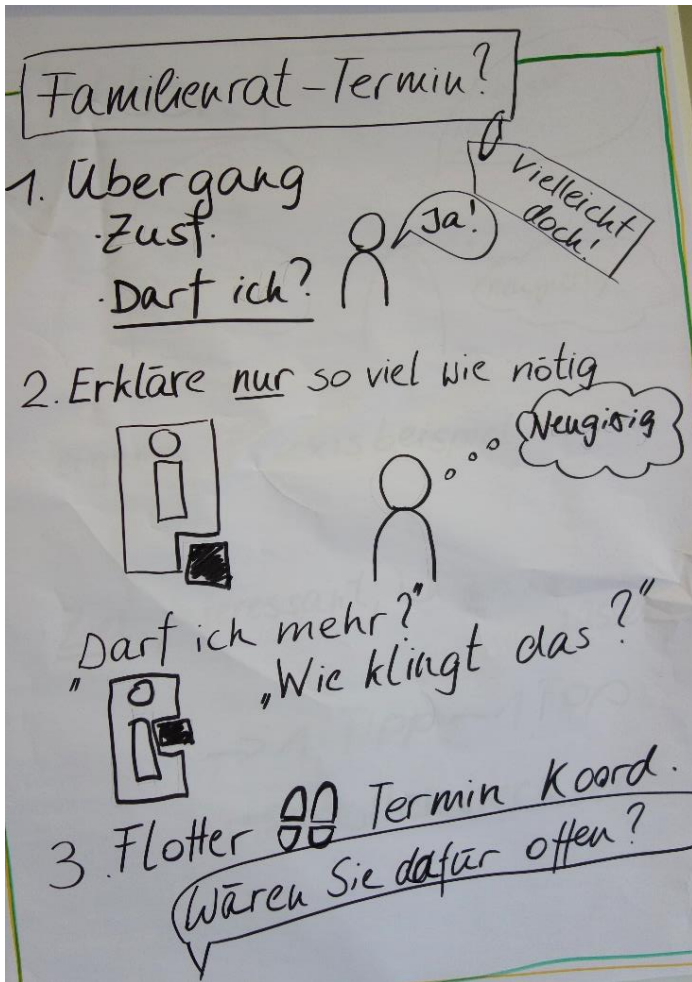 Familienrat-Termin?
Vielleicht
doch!
1. Übergang
· Zust.
· Darf ich?
Ja!
2. Erkläre nur so viel wie nötig
Neugierig
"Darf ich mehr?"
"Wie klingt das?"
3. Flotter Termin Koord.
Wären Sie dafür offen?